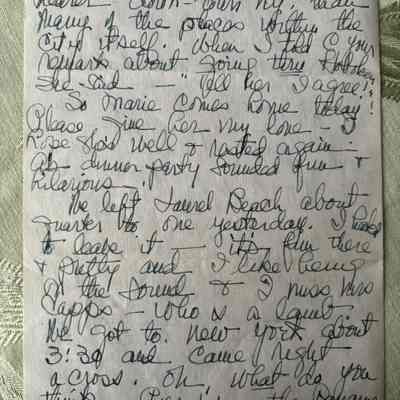 nearer down-town N.Y. than
many of the places within the
city itself. When I told C your
remark about going thru Hoboken
she said — "Tell her I agree!"
So Marie comes home today!
Please give her my love — I
hope she's well & rested again.
dinner party sounded fun &
hilarious.
We left Laurel Beach about
quarter to one yesterday. I hated
to leave it — it's fun there
& pretty and I like being
on the Sound & I miss Mrs
Capps — who is a lamb.
We got to New York about
3:30 and came right
across. Oh, what do you
the